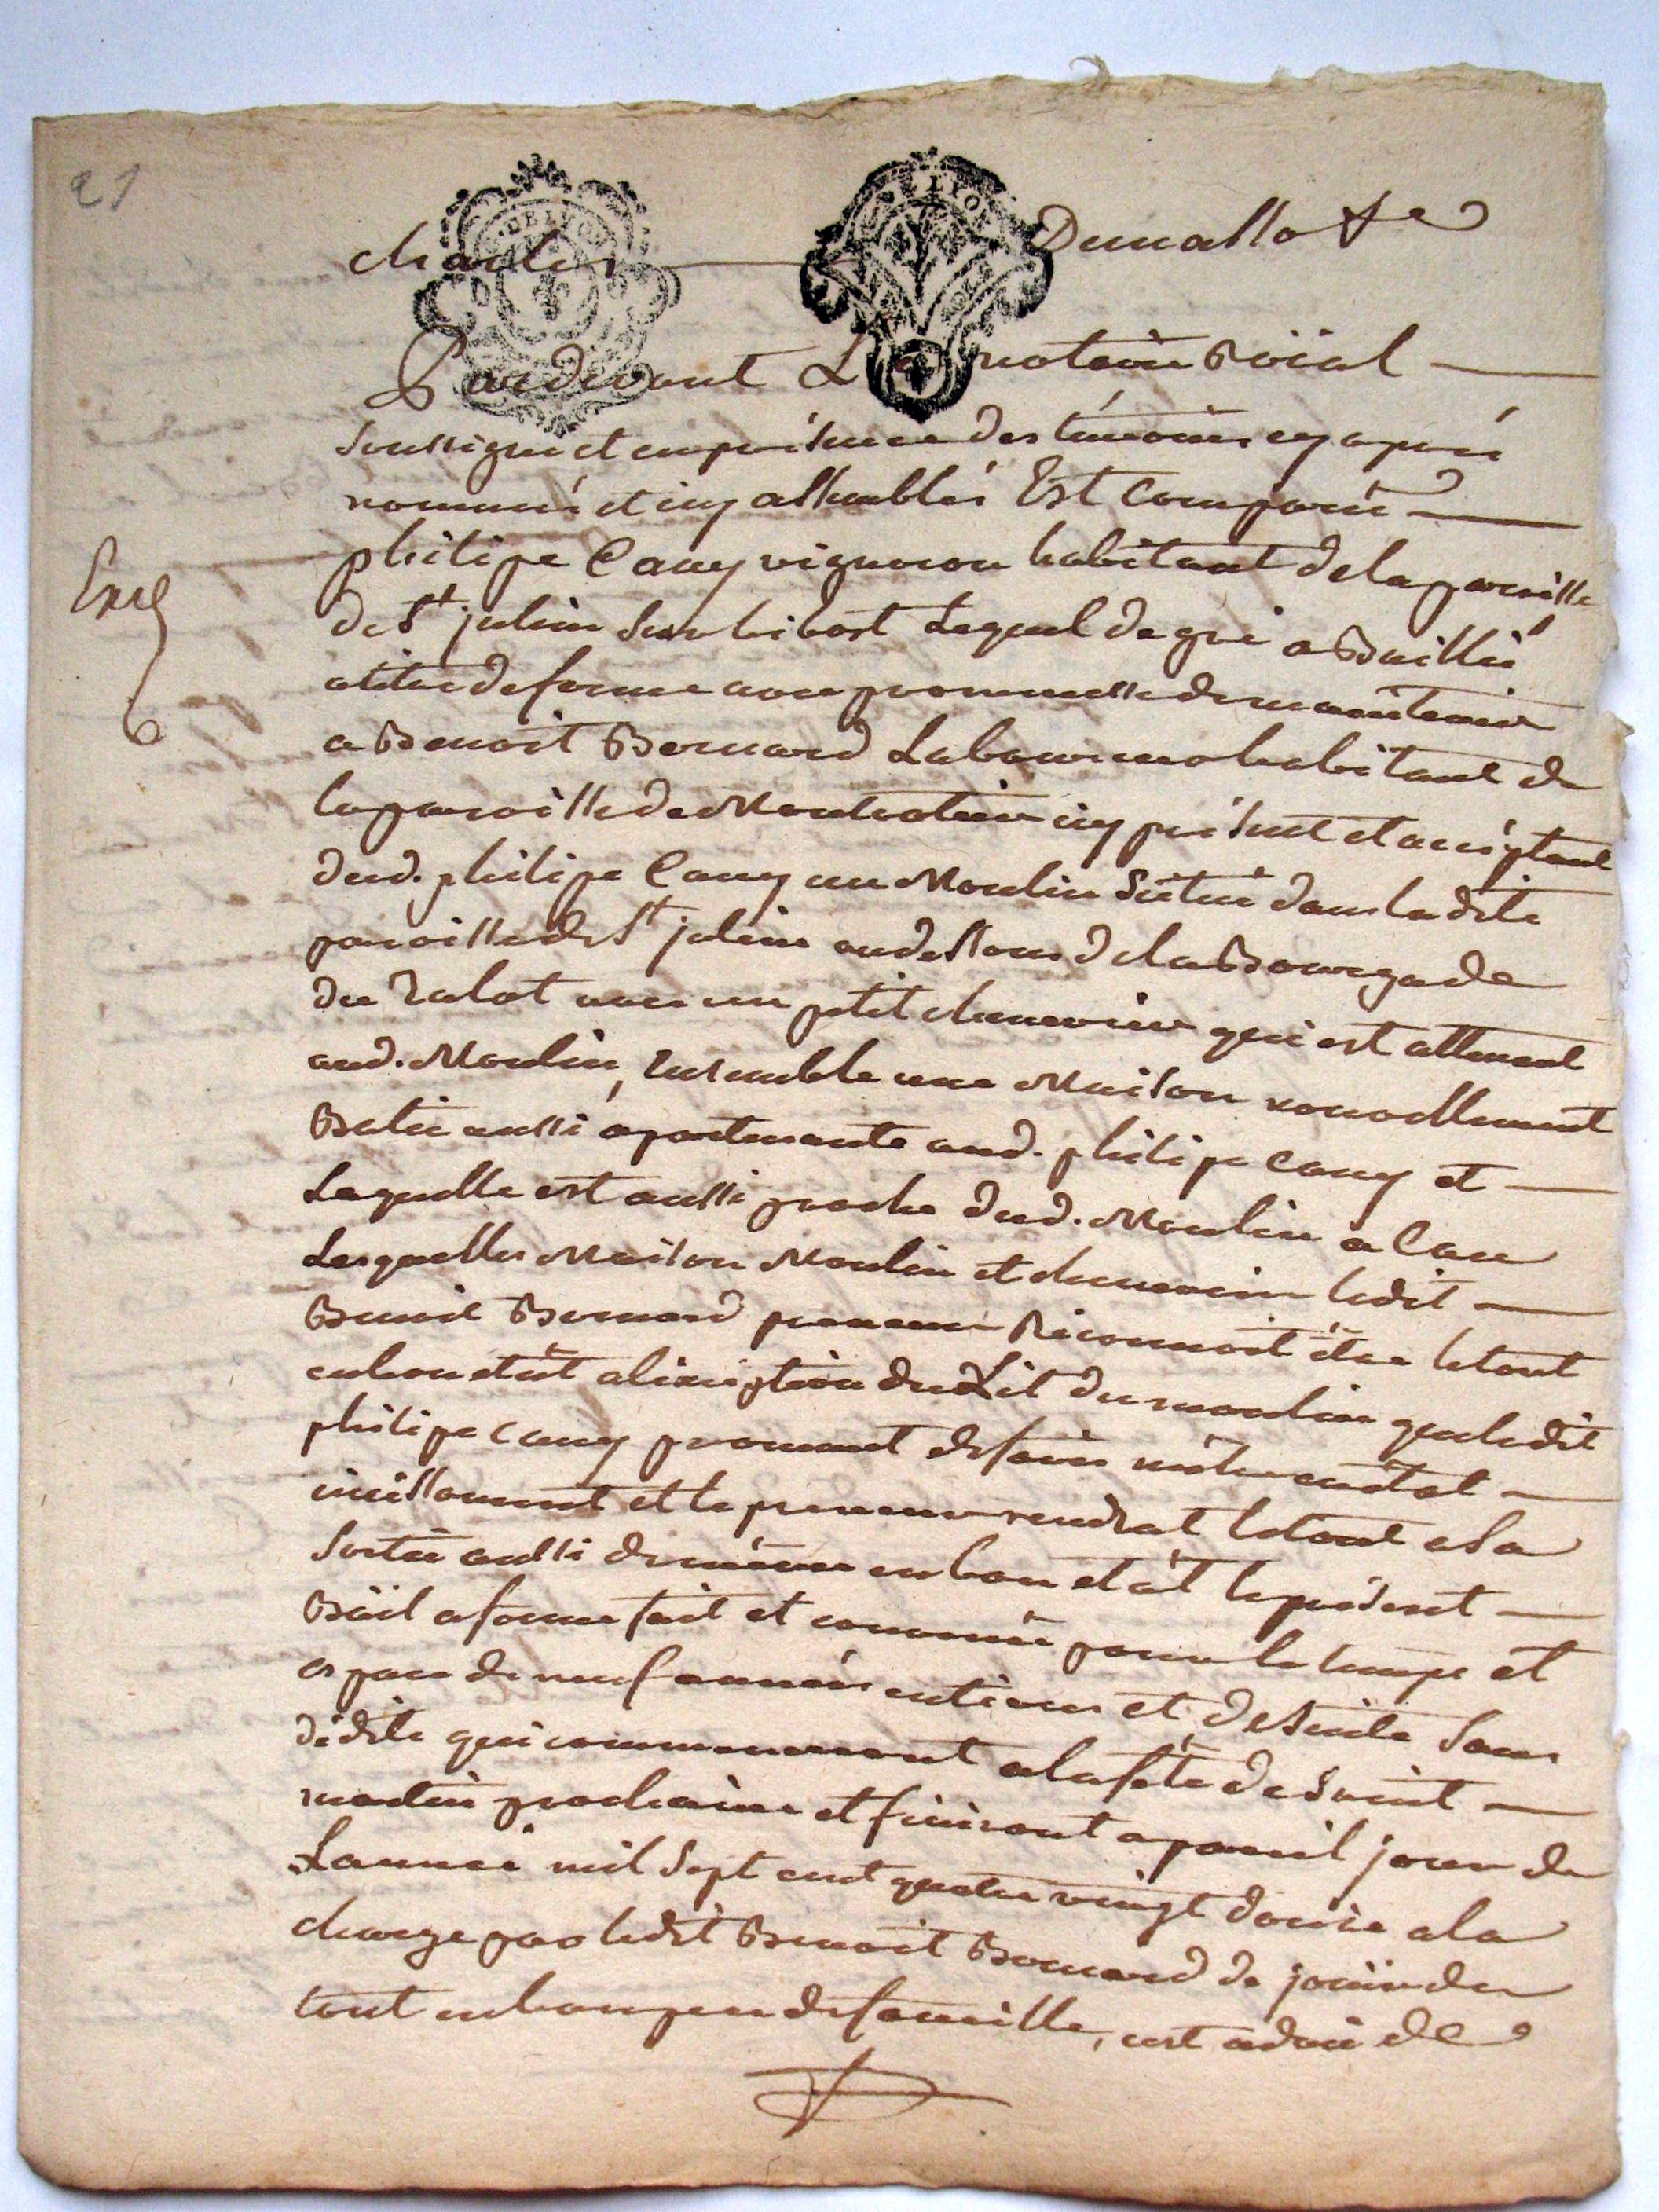 21
charles Dumallo
Pardevant Le notaire Roial
Soussigné et en presence des témoins cy apres
nommés et icy assemblés Est Comparu
philipe Cany vigneron habitant de la paroisse
de St julien Sur bibost Lequel de gre a Baillé
a titre de ferme avec promesse de maintenir
a Benoit Bernard Laboureur habitant de
la paroisse de Montrotier icy présent et acceptant
dud. philipe Cany un Moulin Scitué dans la dite
paroisse de St julien au dessous de la Bourgade
du avec un petit chenevier qui est attenent
aud. Moulin, Ensemble une Maison nouvellement
Batie aussi apartenante aud. philipe Cany et
Laquelle est aussi proche dud. Moulin a Eau
Lesquelles Maison Moulin et chenevier ledit
Benoit Bernard preneur Reconnoit étre le tout
en bon état a l'exception du Lit du moulin que ledit
philipe Cany promet de faire métre en état
incessament et le preneur rendrat le tout a Sa
Sortie aussi de méme en bon état le présent
Bail a ferme fait et convenu pour le temps et
espace de neuf années entieres et de Suite Sans
dédite qui commenceront a la féte de Saint
martin prochaine et finiront a pareil jour de
L'année mil Sept cent quatre vingt douze a la
charge par ledit Benoit Bernard de jouir du
tout en bon pere de famille, c'est a dire de